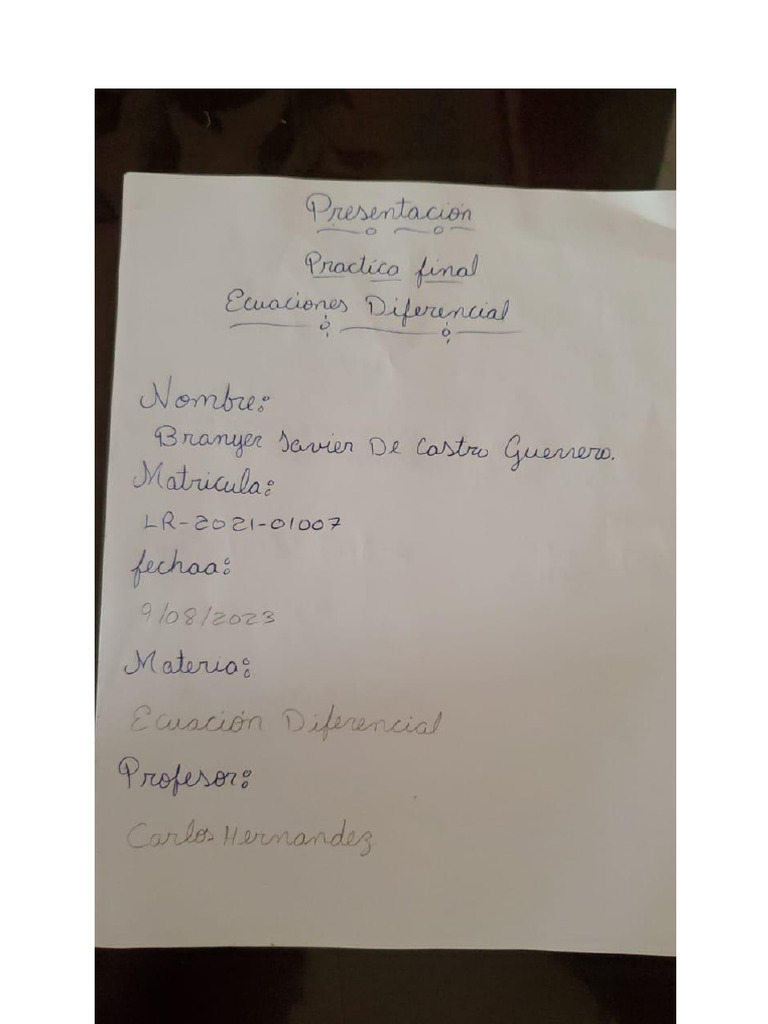 Presentación
Practica final
Ecuaciones Diferencial
Nombre:
Branyer Javier De Castro Guerrero.
Matricula:
LR-2021-01007
fechaa:
9/08/2023
Materia:
Ecuación Diferencial
Profesor:
Carlos Hernandez